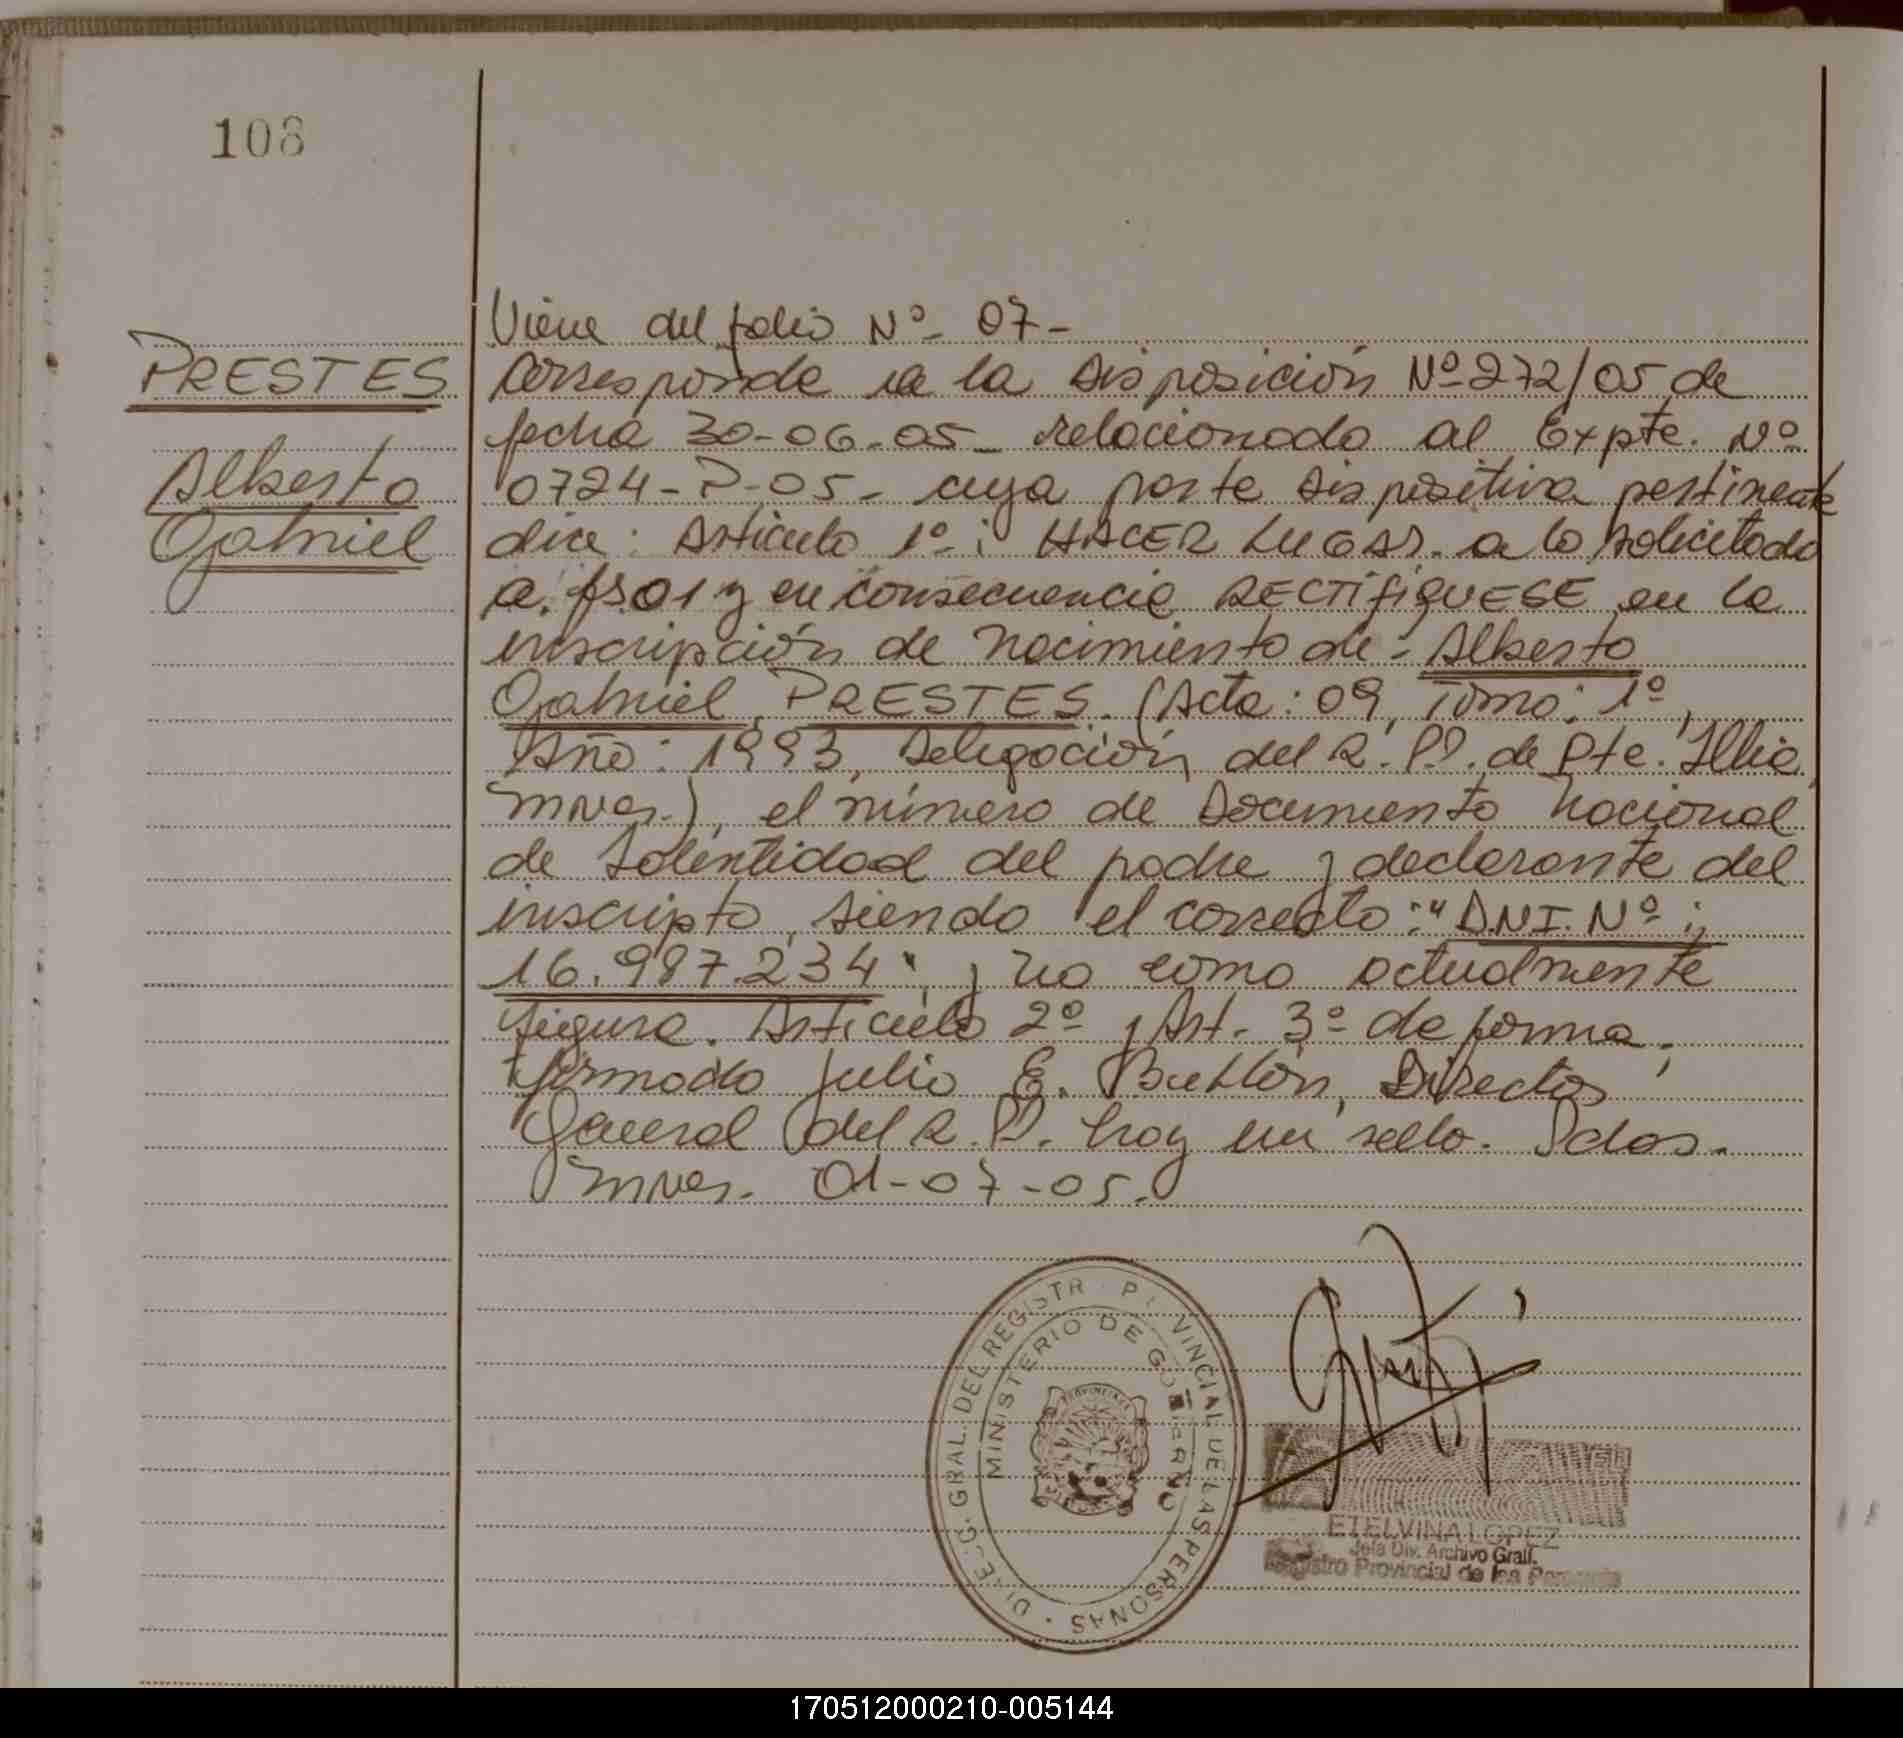 108
PRESTES
Alberto
Gabriel
Viene del folio Nº- 07-
Corresponde a la Disposición Nº 272/05 de
fecha 30-06-05- relacionado al Expte. Nº
0724-P-05- cuya parte dispositiva pertinente
dice: Articulo 1º: HACER LUGAR a lo solicitado
a fs.01 y en consecuencia RECTIFIQUESE en la
inscripción de nacimiento de - Alberto
Gabriel PRESTES. (Acta: 09, Tomo: 1º,
Año: 1993, Delegación del R.P.P. de Pte. Illia,
Mnes.), el número de Documento Nacional
de Identidad del padre y declarante del
inscripto, siendo el correcto: "D.N.I. Nº:
16.987.234", y no como actualmente
figura. Articulo 2º y Art. 3º de forma,
firmado Julio E. Butlon, Director
General del R.P.P. hay un sello. Pdas.
Mnes. 01-07-05.
DIREC. GRAL. DEL REGISTR PR VINCIAL DE LAS PERSONAS
MINISTERIO DE GOBIERNO
ETELVINA LOPEZ
Jefa Div. Archivo Gral.
Registro Provincial de las Personas
170512000210-005144